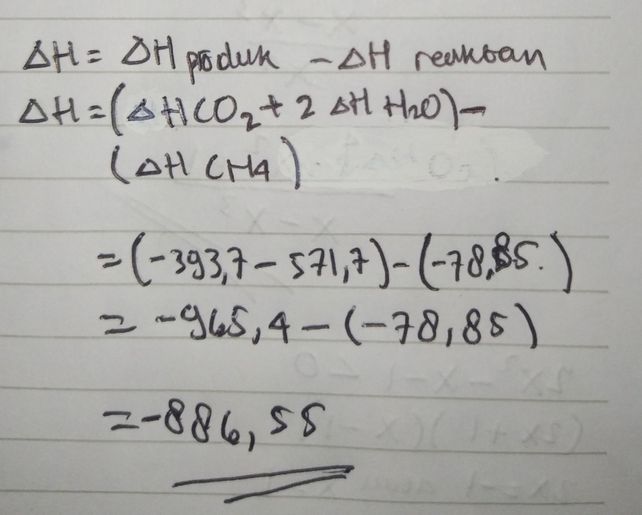 ΔH = ΔH produk - ΔH reaktan
ΔH = (ΔHCO₂ + 2 ΔH H₂O) -
(ΔH CH4)
= (-393,7 - 571,7) - (-78,85.)
= -965,4 - (-78,85)
= -886,55